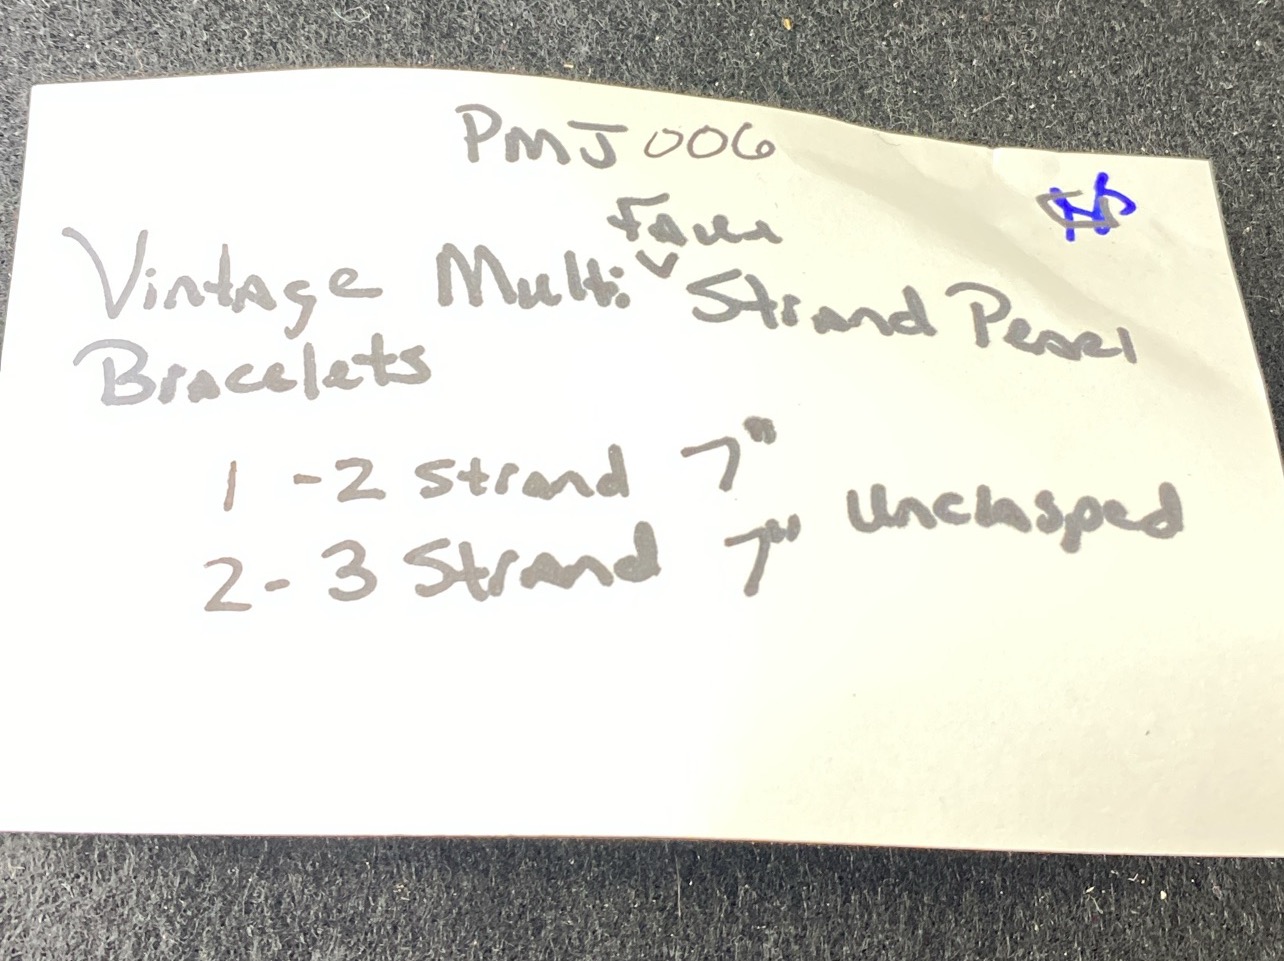 PMJ 006
Vintage Multi Faux Strand Pearl
Bracelets
1 - 2 Strand 7"
2 - 3 Strand 7" Unclasped